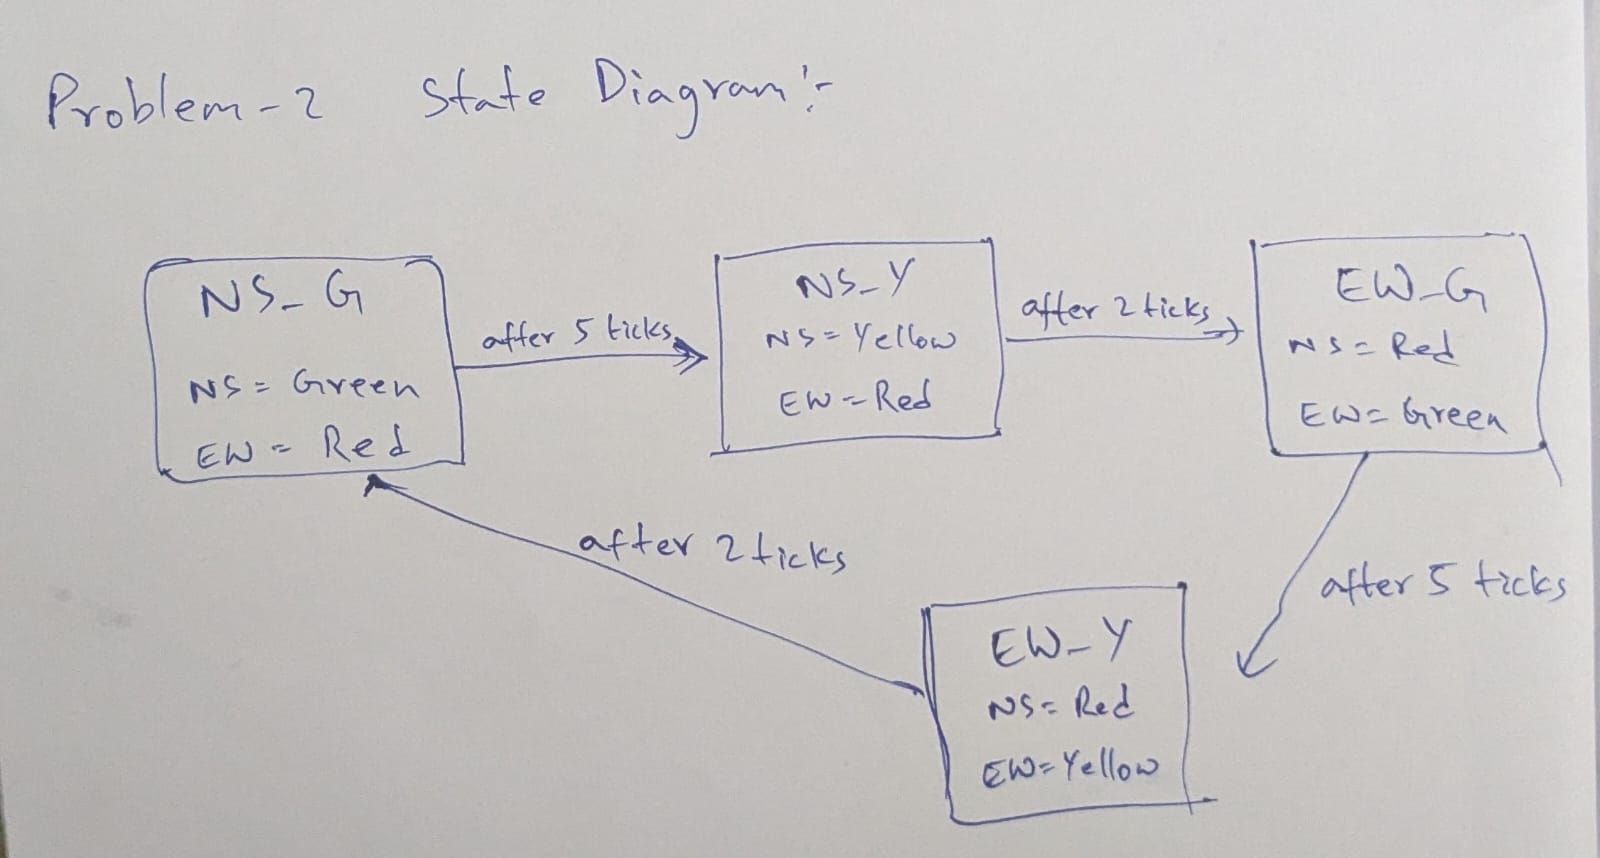 Problem-2 State Diagram:-
NS_G
NS = Green
EW = Red
after 5 ticks
NS_Y
NS = Yellow
EW = Red
after 2 ticks
EW_G
NS = Red
EW = Green
after 5 ticks
EW_Y
NS = Red
EW = Yellow
after 2 ticks